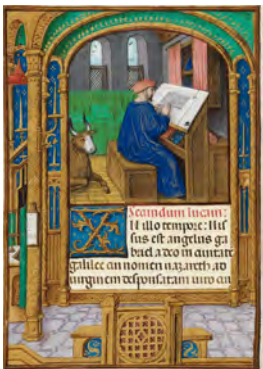 Secundum lucam:
N illo tempore: Mis
sus est angelus ga
briel a deo in civitatē
galilee cui nomen nazareth ad
virginem desponsatam viro cui